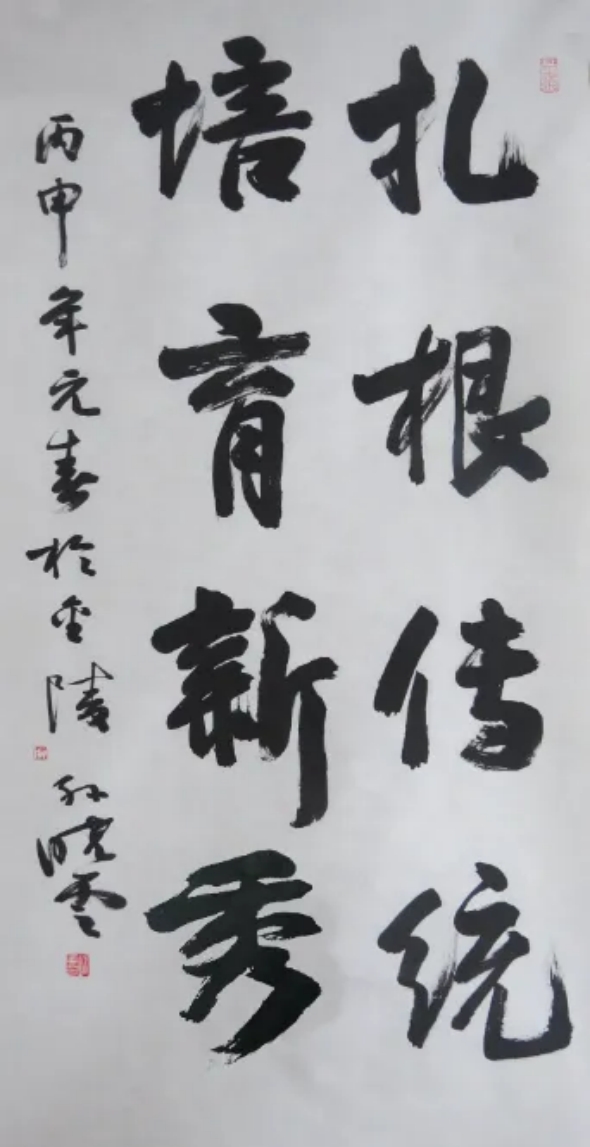 扎根传统
培育新秀
丙申年元春於金陵 孙晓云